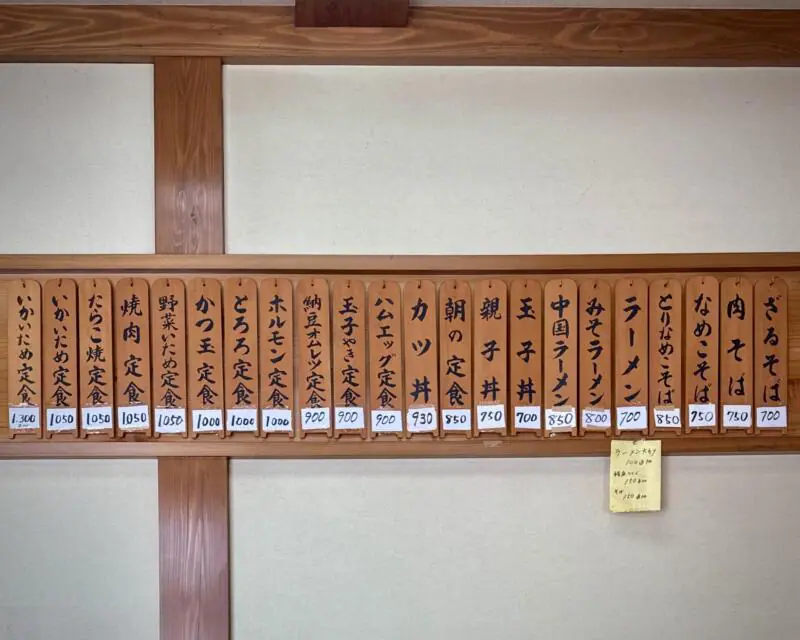 ざるそば 700
肉そば 750
なめこそば 750
とりなめこそば 850
ラーメン 700
みそラーメン 800
中国ラーメン 850
玉子丼 700
親子丼 750
朝の定食 850
カツ丼 930
ハムエッグ定食 900
玉子やき定食 900
納豆オムレツ定食 900
ホルモン定食 1000
とろろ定食 1000
かつ玉定食 1000
野菜いため定食 1050
焼肉定食 1050
たらこ焼定食 1050
いかいため定食 1050
いかいため定食 1,300
ラーメン大もり
100
150
150